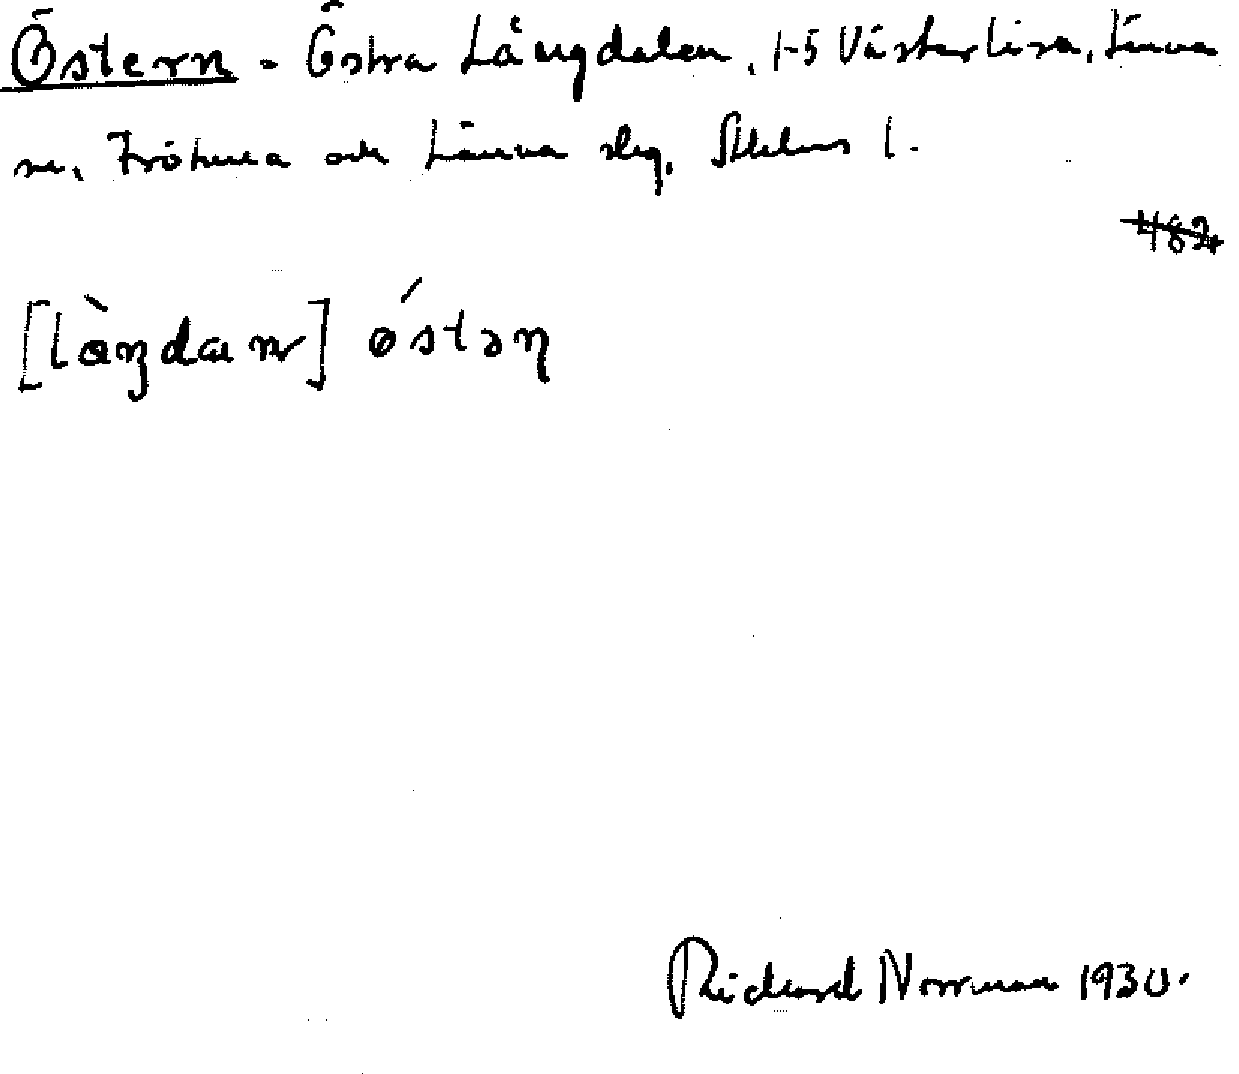 Östern - Östra Långdalen, 1-5 Västerlisa, Länna
sn, Frötuna och Länna slg, Sthlms l.
482
[làŋdaɩ nr] ǿstəɳ
Rickard Norrman 1930.